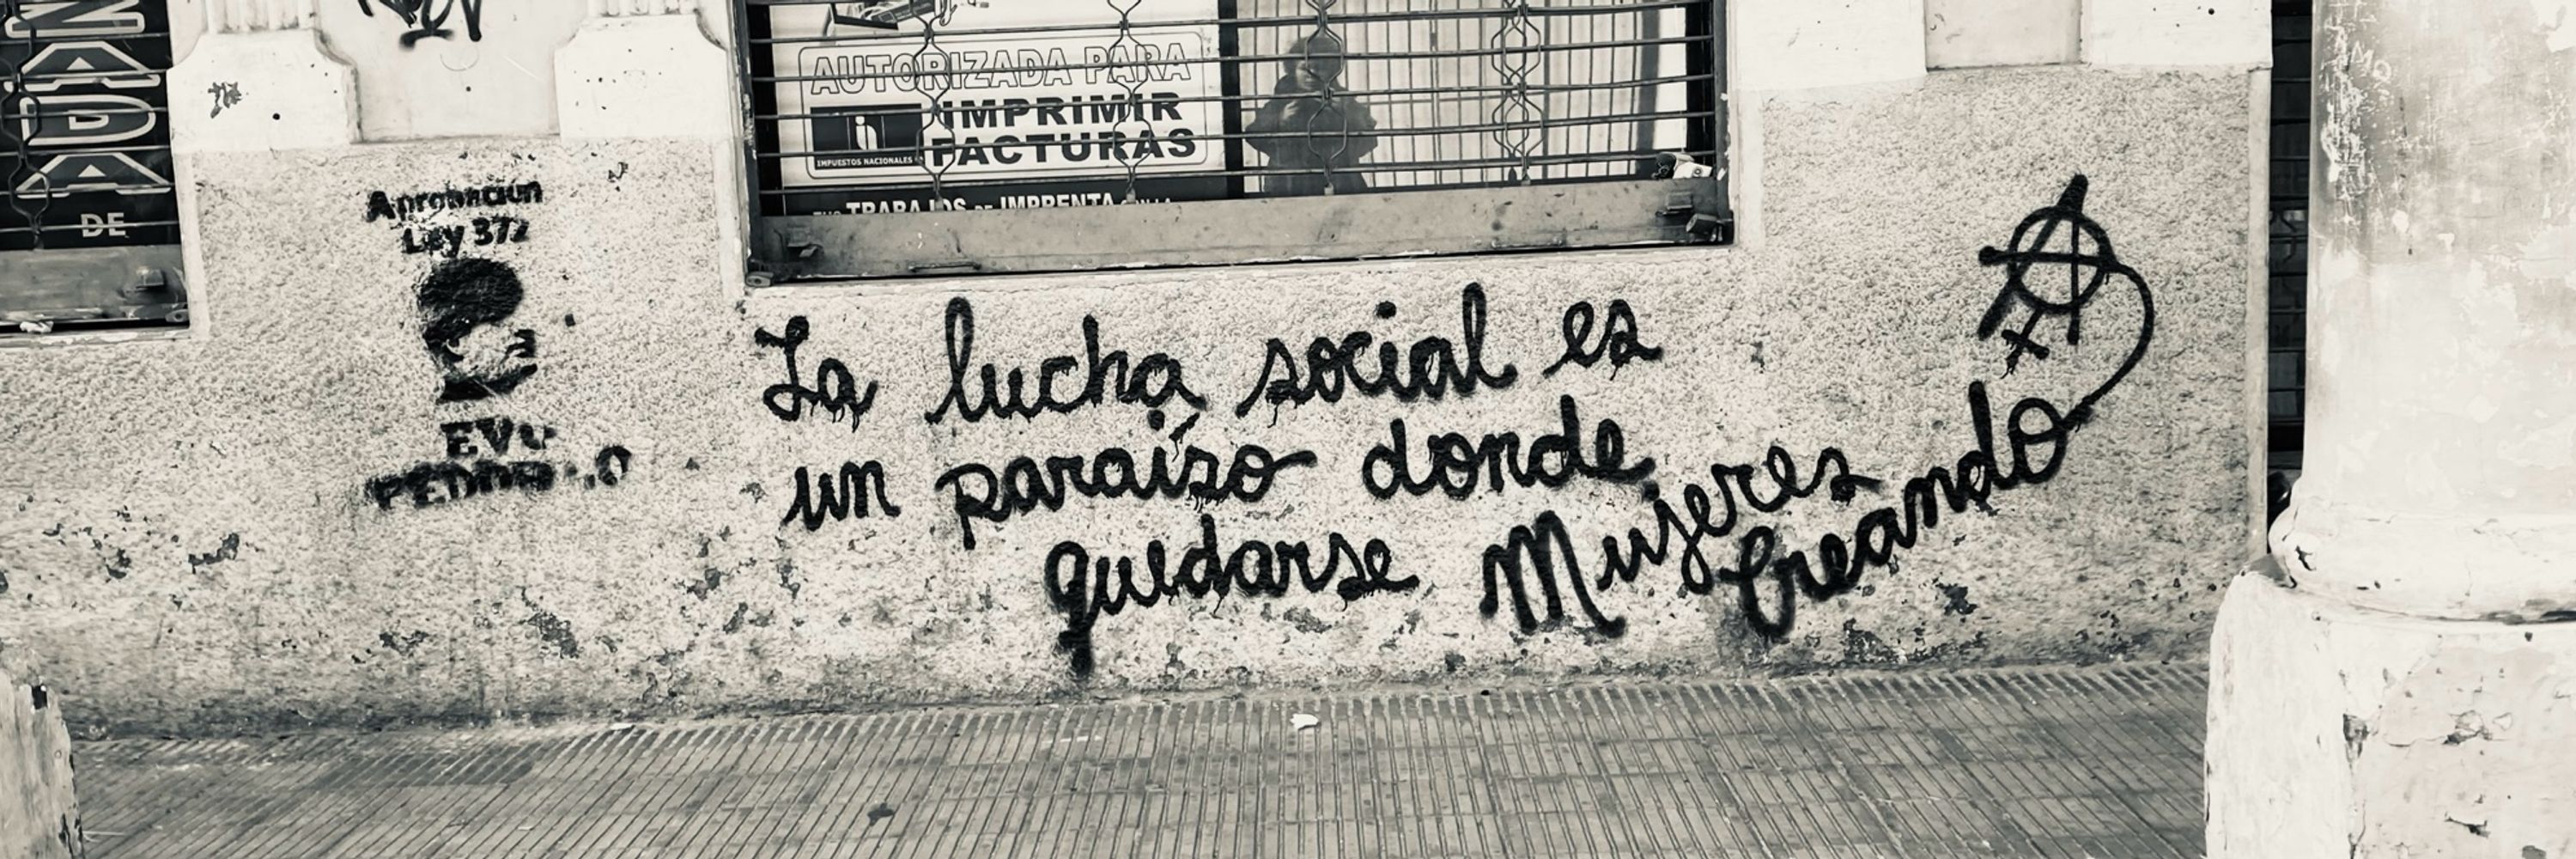 NADA
DE
AUTORIZADA PARA
IMPRIMIR
FACTURAS
IMPUESTOS NACIONALES
TRABAJOS DE IMPRENTA
Aprobación
Ley 372
EVO
La lucha social es
un paraíso donde
quedarse Mujeres
Creando